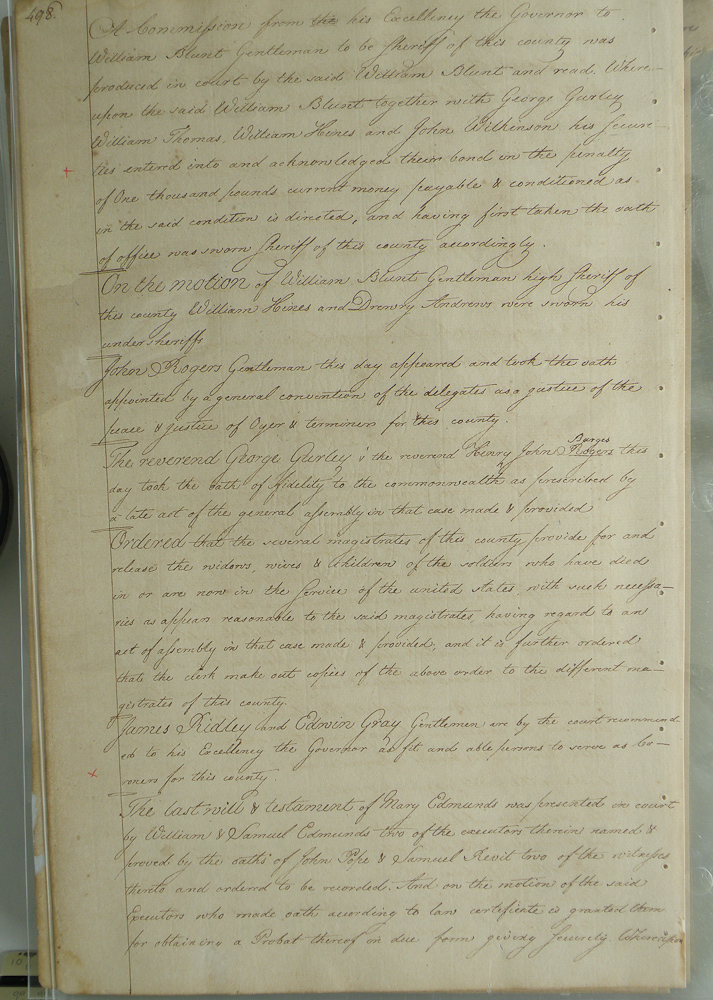 498.
A Commission from the his Excellency the Governor to
William Blunt Gentleman to be Sheriff of this county was
produced in court by the said William Blunt and read. Where-
upon the said William Blunt together with George Gurley
William Thomas, William Hines and John Wilkinson his secure
ties entered into and acknowledged their bond in the penalty
of One thousand pounds current money payable & conditioned as
in the said condition is directed, and having first taken the oath
of office was sworn Sheriff of this county accordingly.
On the motion of William Blunt Gentleman high Sheriff of
this county William Hines and Drewry Andrews were sworn his
undersheriffs
John Rogers Gentleman this day appeared and took the oath
appointed by a general convention of the delegates as a justice of the
peace & justice of Oyer & terminer for this county.
Burges
The reverend George Gurley & the reverend Henry John Rogers this
day took the oath of fidelity to the commonwealth as prescribed by
a late act of the general assembly in that case made & provided
Ordered that the several magistrates of this county provide for and
release the widows, wives & children of the soldiers who have died
in or are now in the service of the united states, with such necessa-
ries as appear reasonable to the said magistrates, having regard to an
act of assembly in that case made & provided, and it is further ordered
that the clerk make out copies of the above order to the different ma-
gistrates of this county.
James Ridley and Edwin Gray Gentlemen are by the court recommend
ed to his Excellency the Governor as fit and able persons to serve as Co-
roners for this county.
The last will & testament of Mary Edmunds was presented in court
by William & Samuel Edmunds two of the executors therein named &
proved by the oaths of John Pope & Samuel Kevit two of the witnesses
thereto and ordered to be recorded. And on the motion of the said
Executors who made oath according to law certificate is granted them
for obtaining a Probat thereof in due form giving security Whereupon